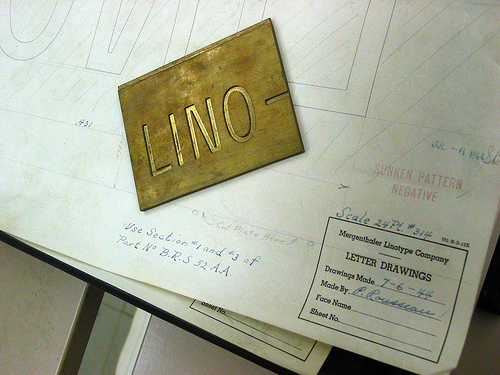 LINO-
.431
JUL - 13 1966
SUNKEN PATTERN
NEGATIVE
Cut Plate Here
Use Section #1 and #3 of
Part Nº B.R.S-52 A.A.
Scale 24 Pt. # 314
Mergenthaler Linotype Company
LETTER DRAWINGS
Drawings Made 7-6-44
Made By
Face Name
Sheet No.
Sheet No.